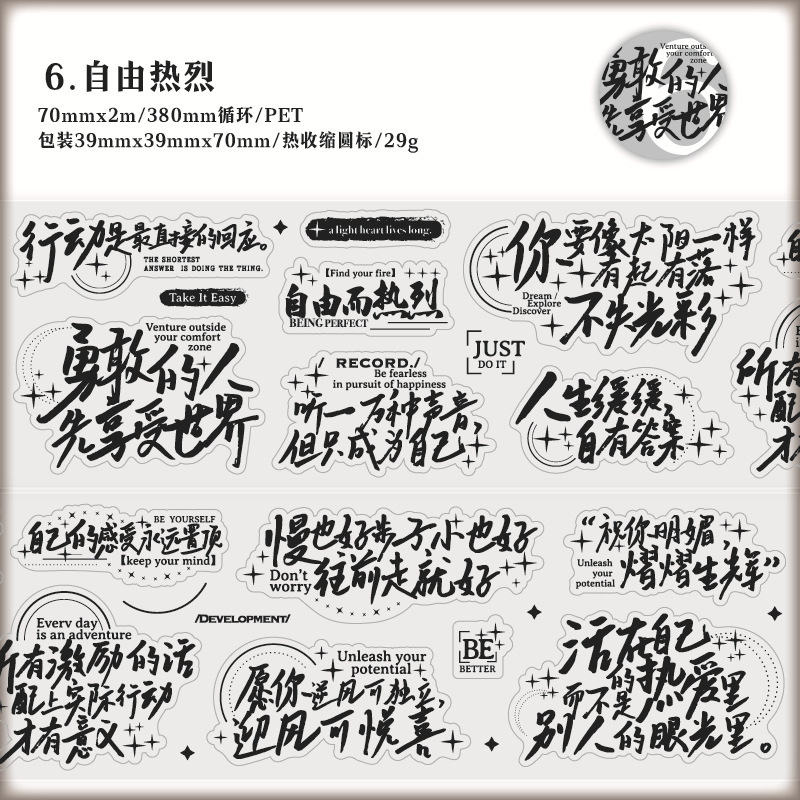 6.自由热烈
70mmx2m/380mm循环/PET
包装39mmx39mmx70mm/热收缩圆标/29g
Venture outs
your comfort
zone
勇敢的人
先享受世界
行动是最直接的回应。
THE SHORTEST
ANSWER IS DOING THE THING.
a light heart lives long.
Take It Easy
【Find your fire】
自由而热烈
BEING PERFECT
你要像太阳一样
有起有落
不失光彩
Dream /
Explore
Discover
Venture outside
your comfort
zone
勇敢的人
先享受世界
RECORD./
Be fearless
in pursuit of happiness
听一万种声音,
但只成为自己
JUST
DO IT
人生缓缓,
自有答案
所有
配
才
自己的感受永远置顶
BE YOURSELF
【keep your mind】
慢也好步子小也好
Don't
worry
往前走就好
“祝你明媚,
Unleash
your
potential
熠熠生辉”
/DEVELOPMENT/
Every day
is an adventure
所有激励的话
配上实际行动
才有意义
Unleash your
potential
愿你逆风可独立,
迎风可悦喜
BE
BETTER
活在自己
的热爱里
而不是
别人的眼光里。